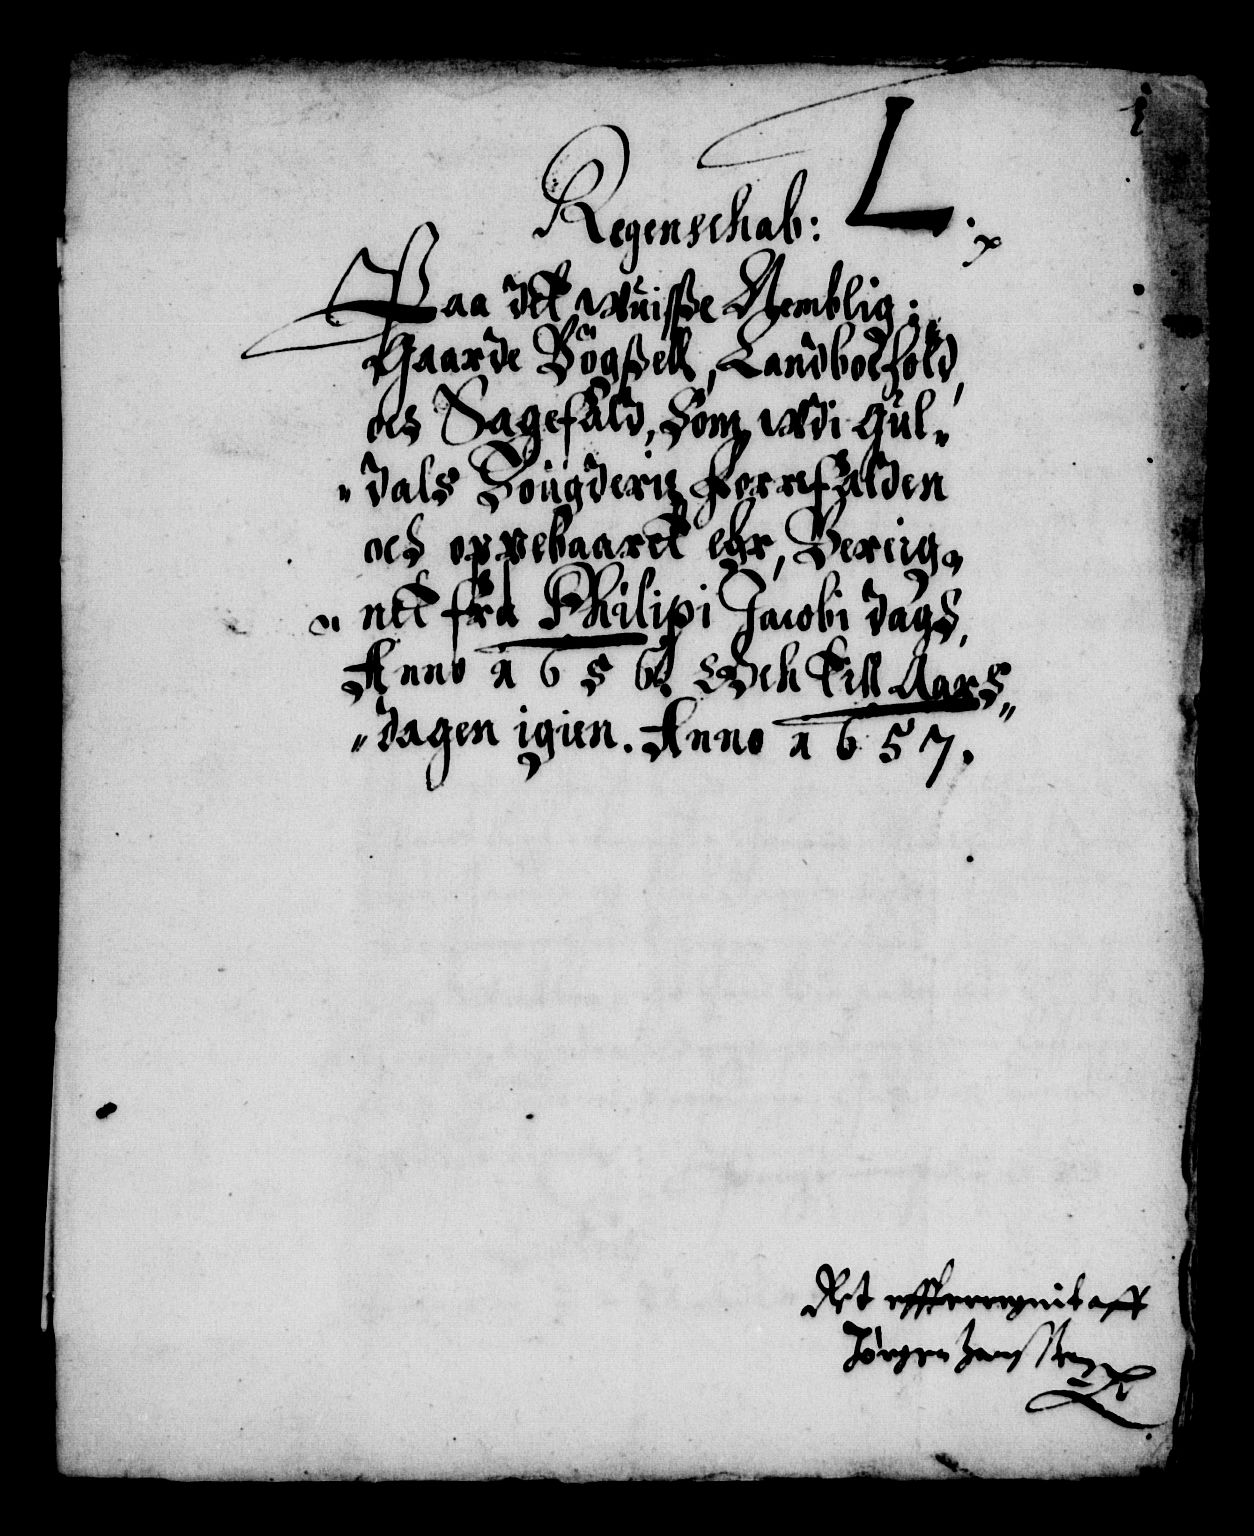 1
L.
Regenschab:
Paa dett wuisße Nemblig:
Haarde Bögßell, Landbodhold,
och Sagefald, Som wdi Gul-
dals Fougderie forrefalden
och oppebaaret ehr, Bereig-
nett frå Philipi Jacobi dags,
Anno 1656. Och till Aars
dagen igien. Anno 1657.
Ret effterregnit aff
Jørgen Hansßen